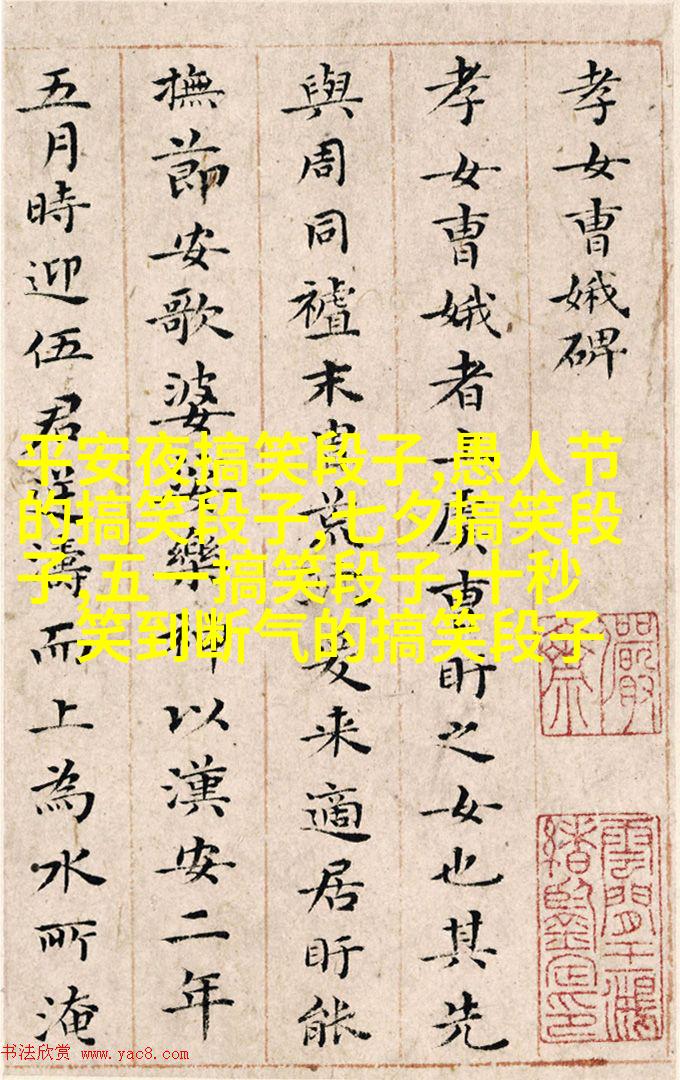 孝女曹娥碑
孝女曹娥者上虞曹盱之女也其先
與周同末胄荒爰来適居盱能
撫節安歌婆娑樂神以漢安二年
五月時迎伍君逆濤而上為水所淹
平安夜搞笑段子,愚人节
的搞笑段子,七夕搞笑段
子,五一搞笑段子,十秒
笑到断气的搞笑段子
书法欣赏 www.yac8.com